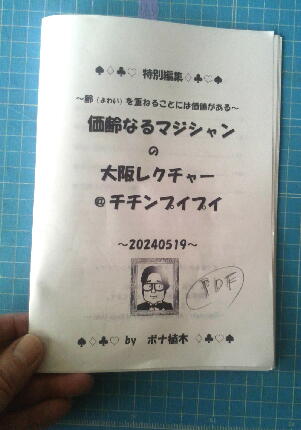 ♠♢♣♡ 特別編集♢♣♡♠
～齢（よわい）を重ねることには価値がある～
価齢なるマジシャン
の
大阪レクチャー
@チチンプイプイ
～20240519～
PDF
♠♢♣♡ by ボナ植木 ♢♣♡♠